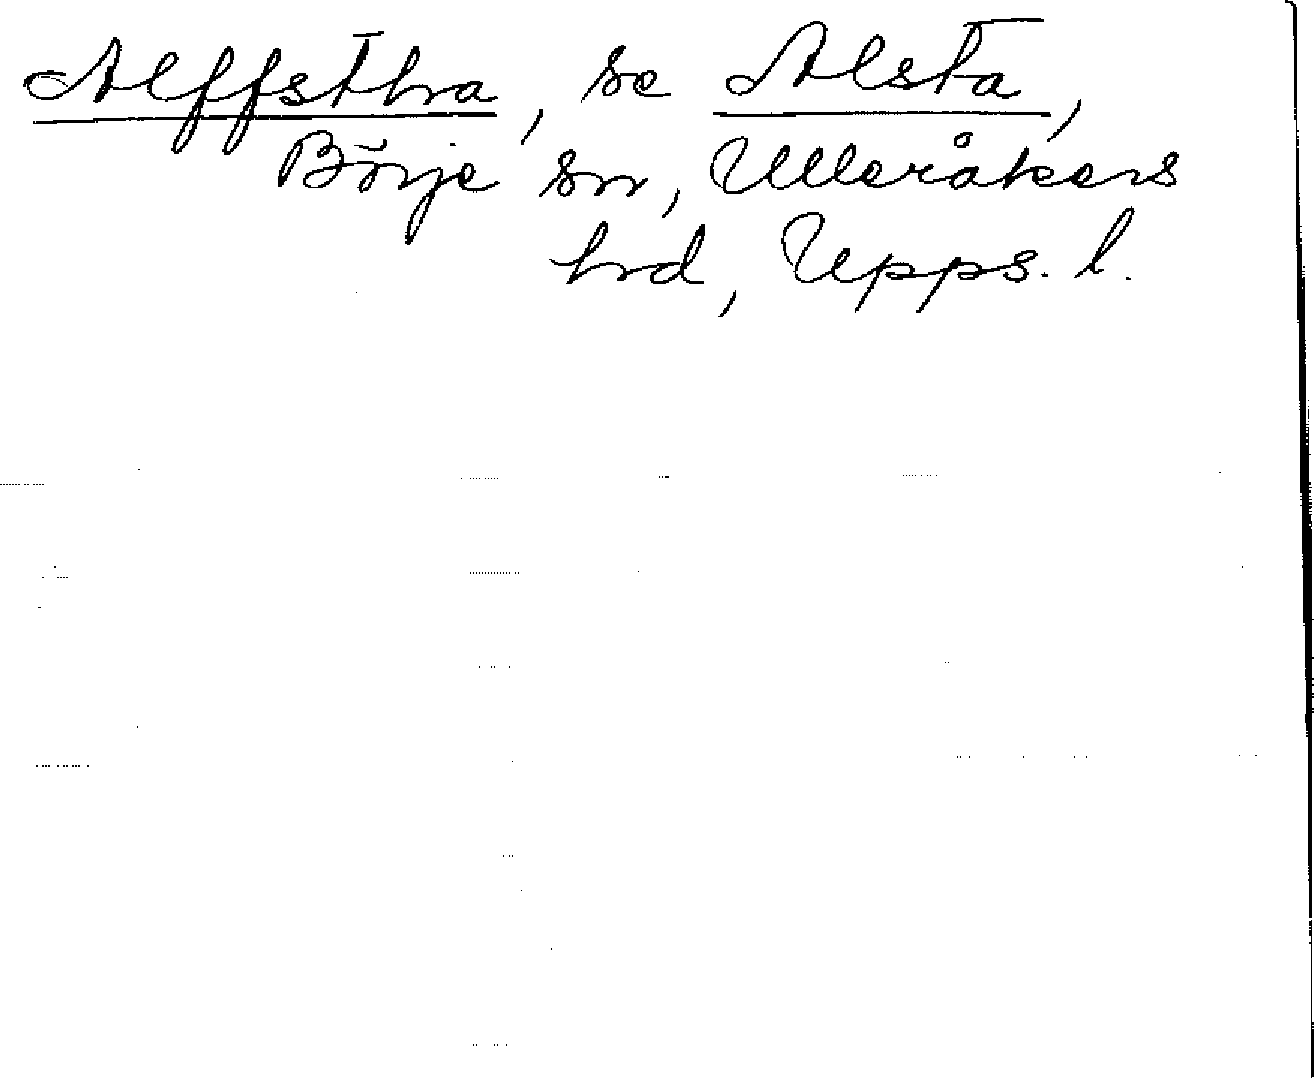 Alffstha, se Alsta,
Börje sn, Ulleråkers
hd, Upps. l.